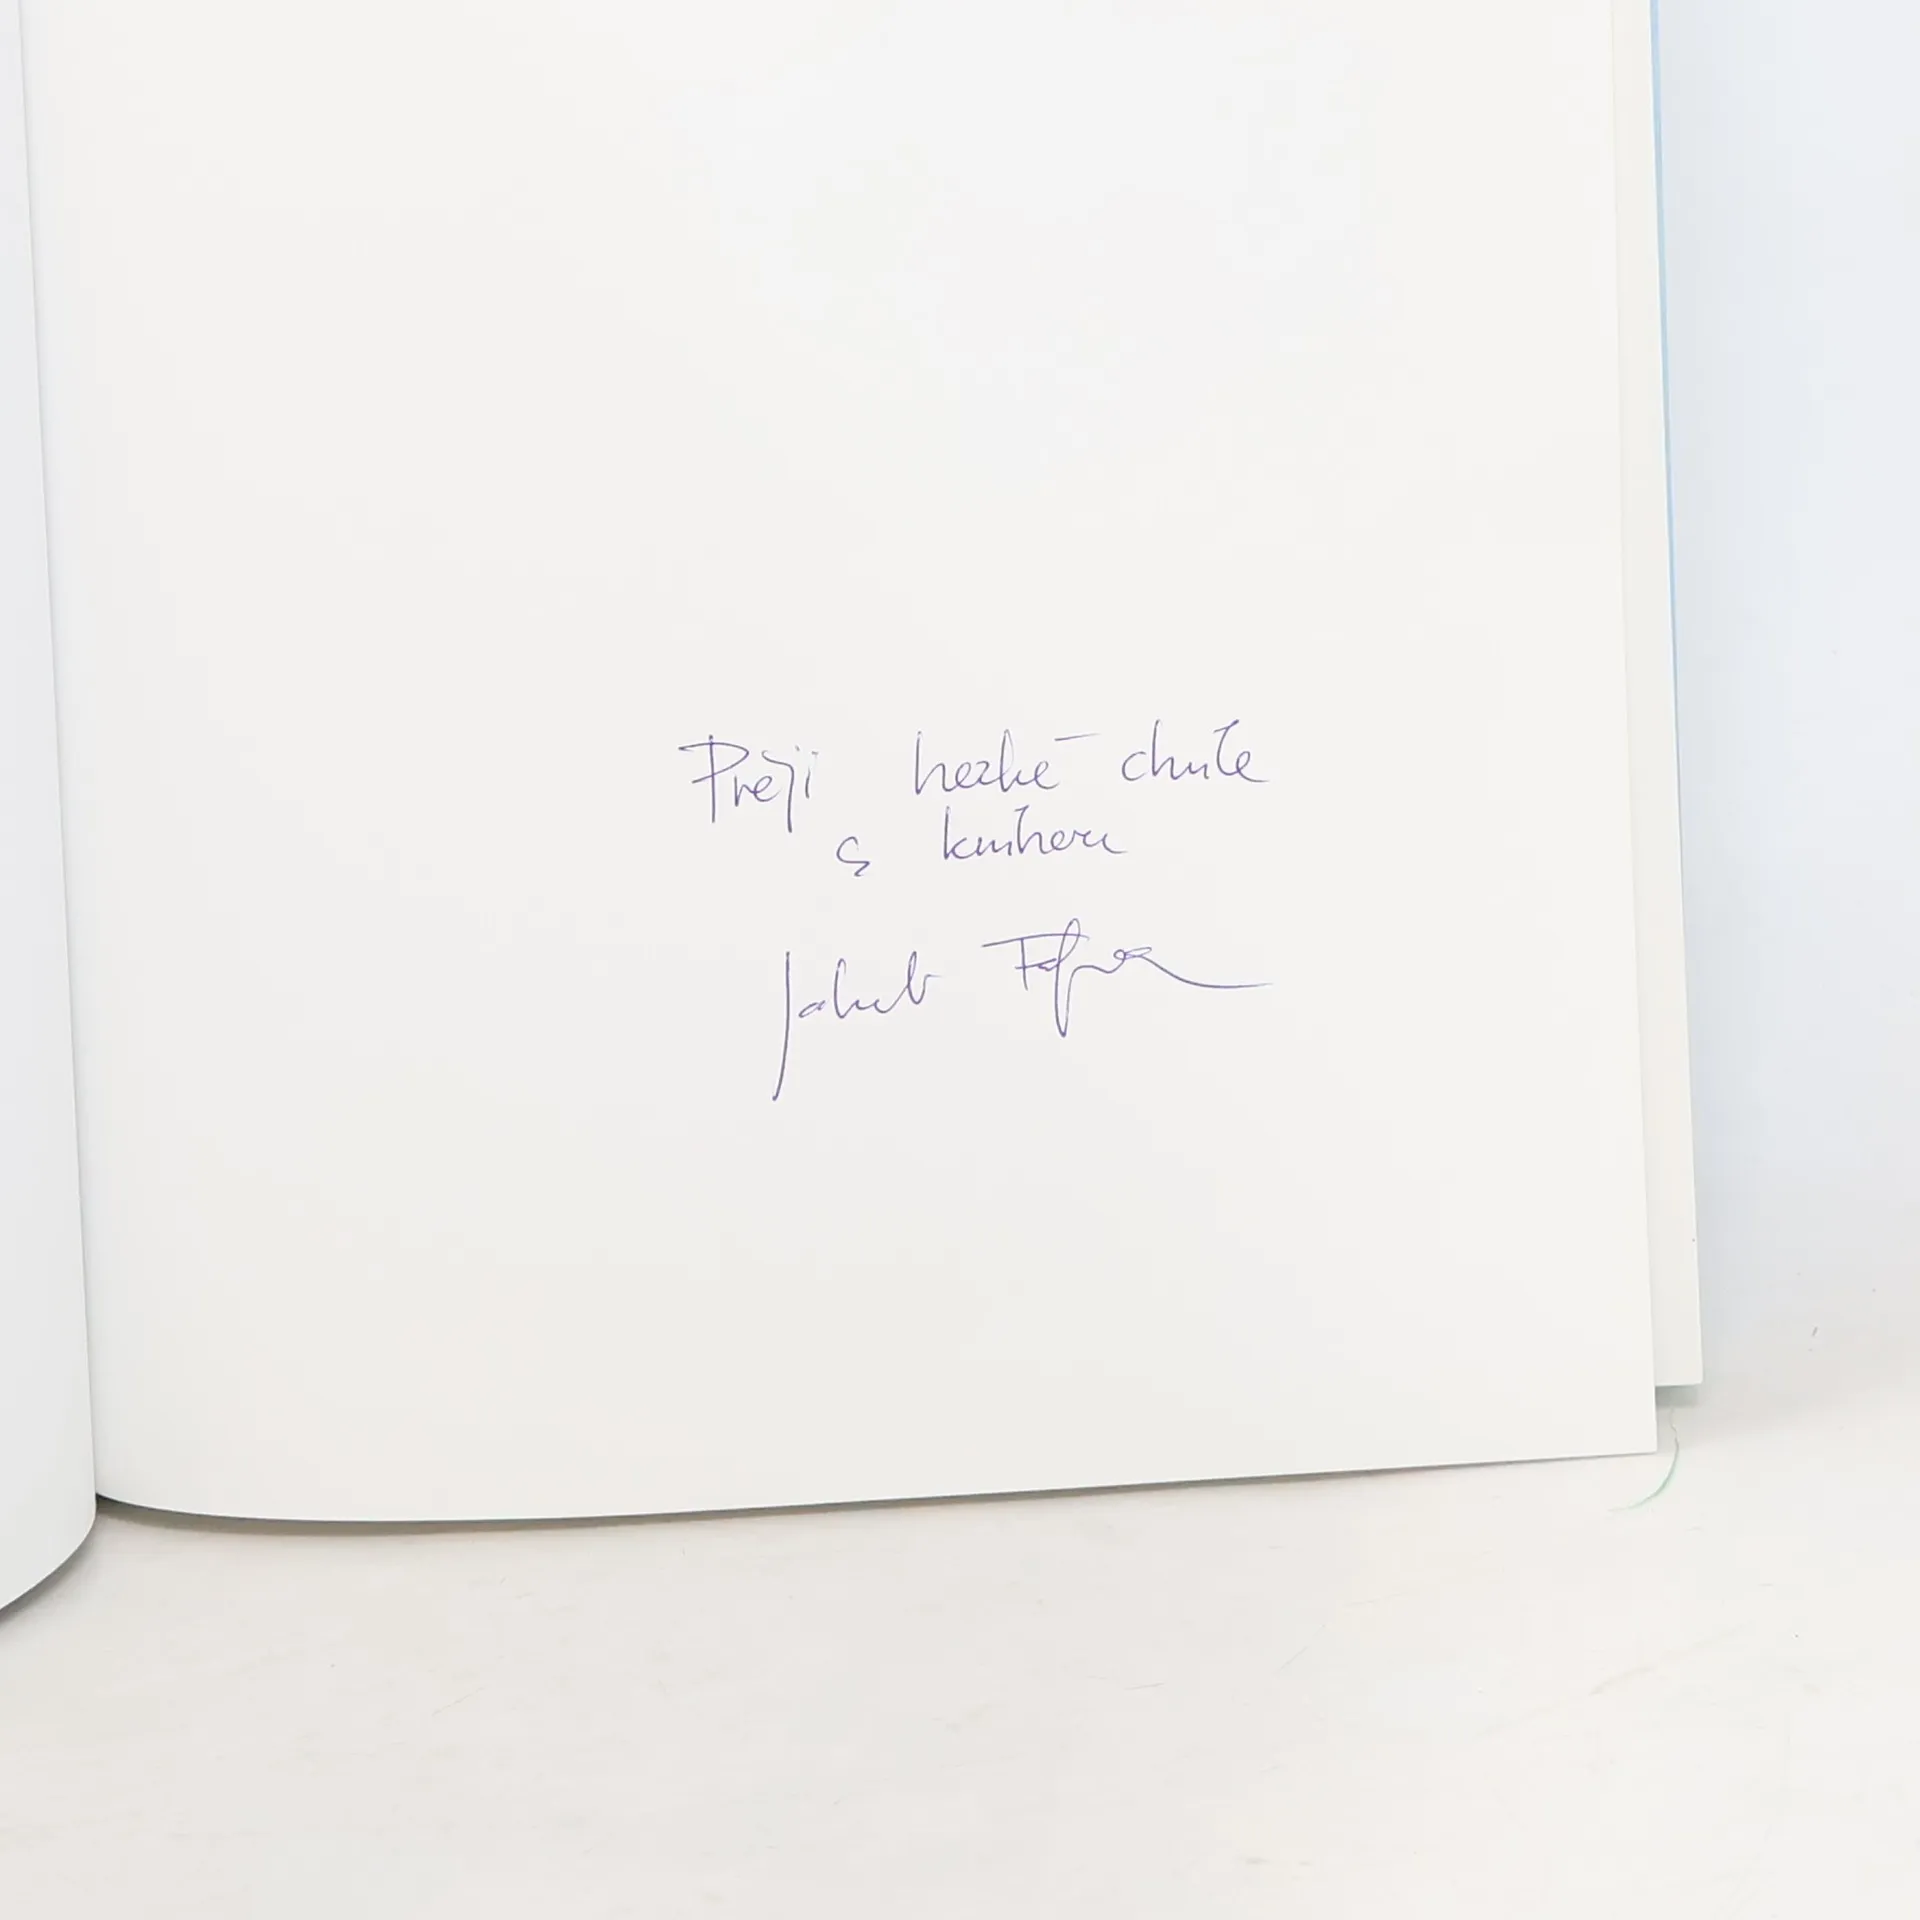 Přeji hezké chvíle
s knihou
Jakub